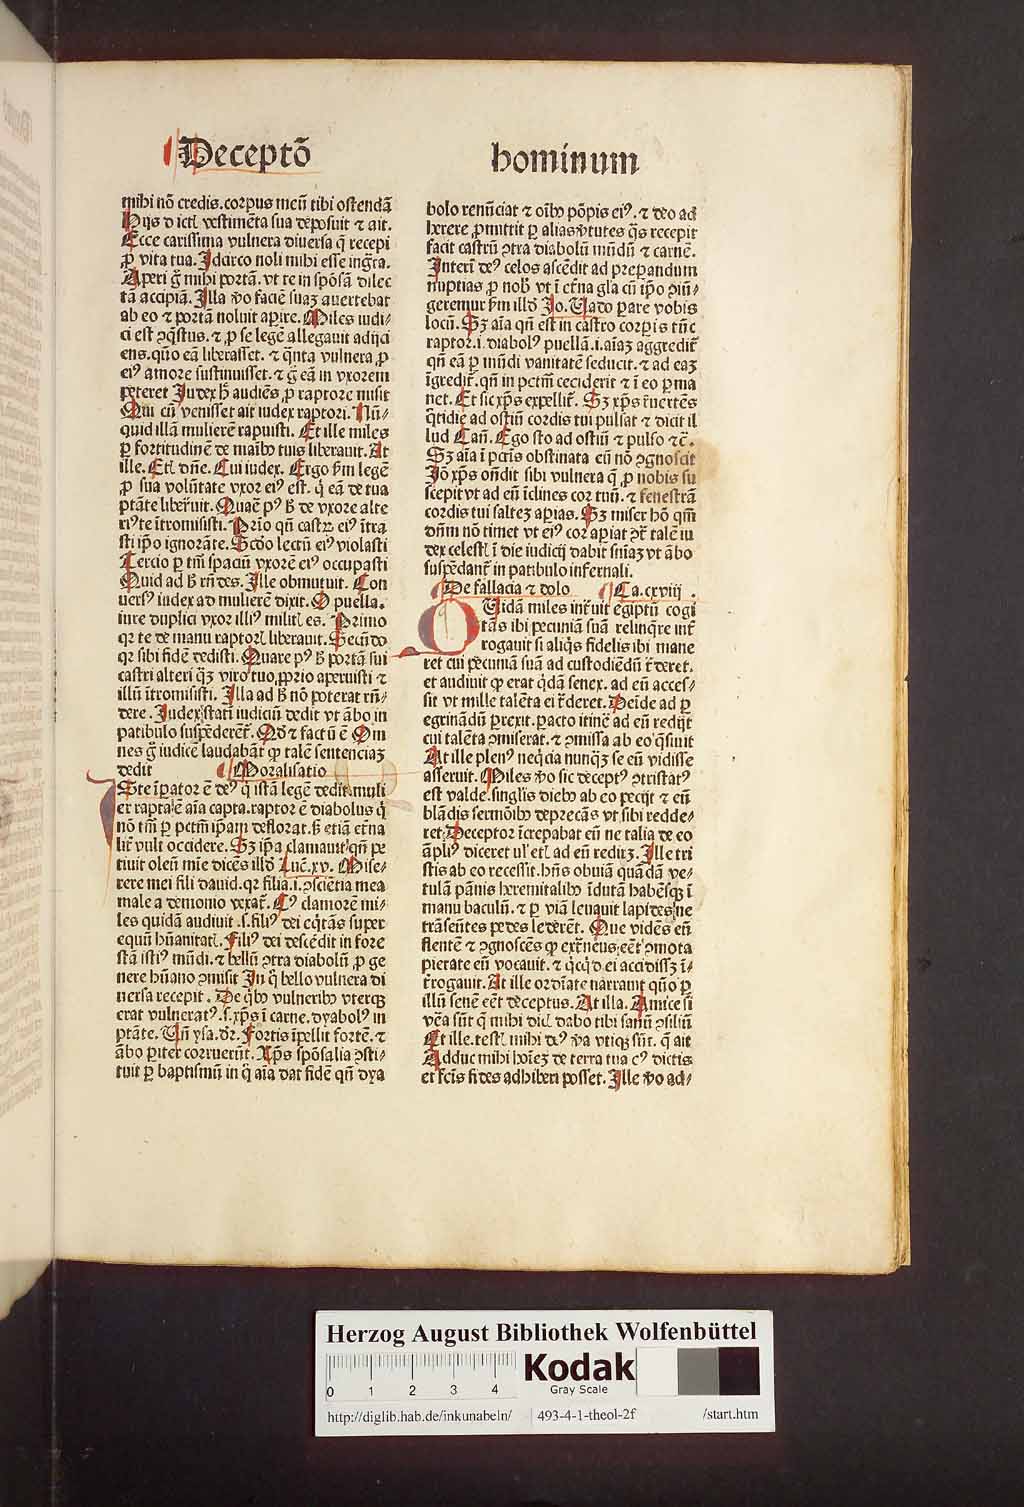 Deceptō
hominum
mihi nō credis. corpus meū tibi ostendā
Hijs dictꝭ vestimēta sua deposuit ⁊ ait.
Ecce carissima vulnera diuersa q̄ recepi
ꝓ vita tua. Idcirco noli mihi esse ingͣta.
Aperi gͦ mihi portā. vt te in spōsā dilec
tā accipiā. Illa v̄o faciē suaꝫ auertebat
ab eo ⁊ portā noluit aꝑire. Miles iudi⸗
ci est ꝯq̄stus. ⁊ ꝓ se legē allegauit adijci
ens. quō eā liberasset. ⁊ q̄nta vulnera ꝓ
eiꝰ amore sustinuisset. ⁊ gͦ eā in vxorem
peteret Iudex h̄ audiēs ꝓ raptore misit
Qui cū venisset ait iudex raptori. Nū⸗
quid illā mulierē rapuisti. Et ille miles
ꝑ fortitudinē de maībꝰ tuis liberauit. At
ille. Etꝭ dn̄e. Cui iudex. Ergo ẜm legē
ꝓ sua volūtate vxor eiꝰ est. q̇ eā de tua
ptāte liber̄uit. Quare pꝰ h̄ de vxore alte
riꝰ te ītromisisti. Prīo qn̄ castrꝝ eiꝰ ītra
sti ip̄o ignorāte. Scdo lectū eiꝰ violasti
Tercio ꝑ tm̄ spaciū vxorē eiꝰ occupasti
Quid ad h̄ rn̄des. Ille obmutuit. Con
uersꝰ iudex ad mulierē dixit. O puella.
iure duplici vxor illiꝰ militꝭ es. Primo
qꝛ te de manu raptorꝭ liberauit. Secūdo
qꝛ sibi fidē dedisti. Quare pꝰ h̄ portā sui
castri alteri qͣꝫ viro tuo ꝓprio aperuisti ⁊
illū ītromisisti. Illa ad h̄ nō poterat rn̄⸗
dere. Iudex statī iudiciū dedit vt ābo in
patibulo suspēderēt᷑. Qd̄ ⁊ factū ē Om
nes gͦ iudicē laudabāt ꝙ talē sententiaꝫ
dedit
Moralisatio
Iste īꝑator ē deꝰ q̇ istā legē dedit. muli
er rapta ē aīa capta. raptor ē diabolus q̇
nō tm̄ ꝑ pctm̄ ip̄am deflorat. h̄ etiā et̄na
lit᷑ vult occidere. Sꝫ ip̄a clamauit qn̄ pe
tiuit oleū mīe dicēs illd̄ Luc̄. xv. Mise⸗
rere mei fili dauid. qꝛ filia .i. ꝯsciētia mea
male a demonio vexat᷑. Cꝰ clamorē mi⸗
les quidā audiuit .s. filiꝰ dei eq̇tās super
equū hūanitatꝭ. Filiꝰ dei descēdit in fore
stā istiꝰ mūdi. ⁊ bellū ꝯtra diabolū ꝓ ge
nere hūano ꝯmisit In q̇ bello vulnera di
uersa recepit. De q̇bꝰ vulneribꝰ vterqꝫ
erat vulneratꝰ .s. xp̄s ī carne. dyabolꝰ in
ptāte. Un̄ ysa. dꝛ. Fortis īpellit fortē. ⁊
ābo ꝑiter corruerūt. Xp̄s spōsalia ꝯsti⸗
tuit ꝑ baptismū in q̇ aīa dat fidē qn̄ dya
bolo renūciat ⁊ oībꝰ pōpis eiꝰ. ⁊ deo ad
herere ꝓmittit ꝑ alias v̓tutes q̄s recepit
facit castrū ꝯtra diabolū mūdū ⁊ carnē.
Interī deꝰ celos ascēdit ad preꝑandum
nuptias ꝓ nobꝭ vt ī et̄na gl̄a cū ip̄o ꝯiū⸗
geremur ẜm illd̄ Jo. Uado ꝑare vobis
locū. Sꝫ aīa qn̄ est in castro corpis tūc
raptor .i. diabolꝰ puellā .i. aīaꝫ aggredit᷑
qn̄ eā ꝑ mūdi vanitatē seducit. ⁊ ad eaꝫ
īgredit᷑. qn̄ in pctm̄ ceciderit ⁊ ī eo ꝑma
net. Et sic xp̄s expellit᷑. Sꝫ xp̄s r̄uertēs
q̇tidie ad ostiū cordis tui pulsat ⁊ dicit il
lud Can̄. Ego sto ad ostiū ⁊ pulso ⁊c̄.
Sꝫ aīa ī pctīs obstinata eū nō ꝯgnoscit
Iō xp̄s on̄dit sibi vulnera q̄ ꝓ nobis su
scepit vt ad eū īclines cor tuū. ⁊ fenestrā
cordis tui salteꝫ aꝑias. Sꝫ miser hō qui
dn̄m nō timet vt eiꝰ cor aꝑiat ꝯt᷑ talē iu
dex celestꝭ ī die iudicij dabit sn̄iaꝫ vt ābo
suspēdant᷑ in patibulo infernali.
De fallacia ⁊ dolo
Ca. cxviij.
Quidā miles int̄uit egiptū cogi
tās ibi pecuniā suā relinq̄re int̄
rogauit si aliq̇s fidelis ibi mane
ret cui pecuniā suā ad custodiēdū t̄deret.
et audiuit ꝙ erat q̇dā senex. ad eū acces⸗
sit vt mille talēta ei t̄deret. Deīde ad ꝑ
egrinādū ꝑrexit. ꝑacto itinē ad eū redijt
cui talēta ꝯmiserat. ⁊ ꝯmissa ab eo q̄siuit
At ille plenꝰ neq̇cia nunqͣꝫ se eū vidisse
asseruit. Miles v̄o sic deceptꝰ ꝯtristatꝰ
est valde. singlis diebꝰ ab eo pecijt ⁊ eū
blādis sermōibꝰ deprecās vt sibi redde⸗
ret. Deceptor īcrepabat eū ne talia de eo
āpliꝰ diceret ul̓ etꝭ ad eū rediꝫ. Ille tri
stis ab eo recessit. hn̄s obuiā quādā ve⸗
tulā pānis heremitalibꝰ īdutā habēsqꝫ ī
manu baculū. ⁊ ꝑ viā leuauit lapides ne
trāseūtes pedes lederēt. Que vidēs eū
flentē ⁊ ꝯgnoscēs ꝙ ext̄neus eēt ꝯmota
pietate eū vocauit. ⁊ q̇cq̇d ei accidissꝫ ī⸗
t̄rogauit. At ille ordīate narrauit quō ꝑ
illū senē eēt deceptus. At illa. Amice si
v̄a sūt q̄ mihi dicꝭ dabo tibi sanū ꝯsiliū
Et ille. testꝭ mihi deꝰ v̄a vtiqꝫ sūt. q̄ ait
Adduc mihi hoīeꝫ de terra tua cꝰ dictis
et fc̄is fides adhiberi posset. Ille v̄o ad⸗
Herzog August Bibliothek Wolfenbüttel
Kodak
Gray Scale
0 1 2 3 4
http://diglib.hab.de/inkunabeln/ 493-4-1-theol-2f /start.htm